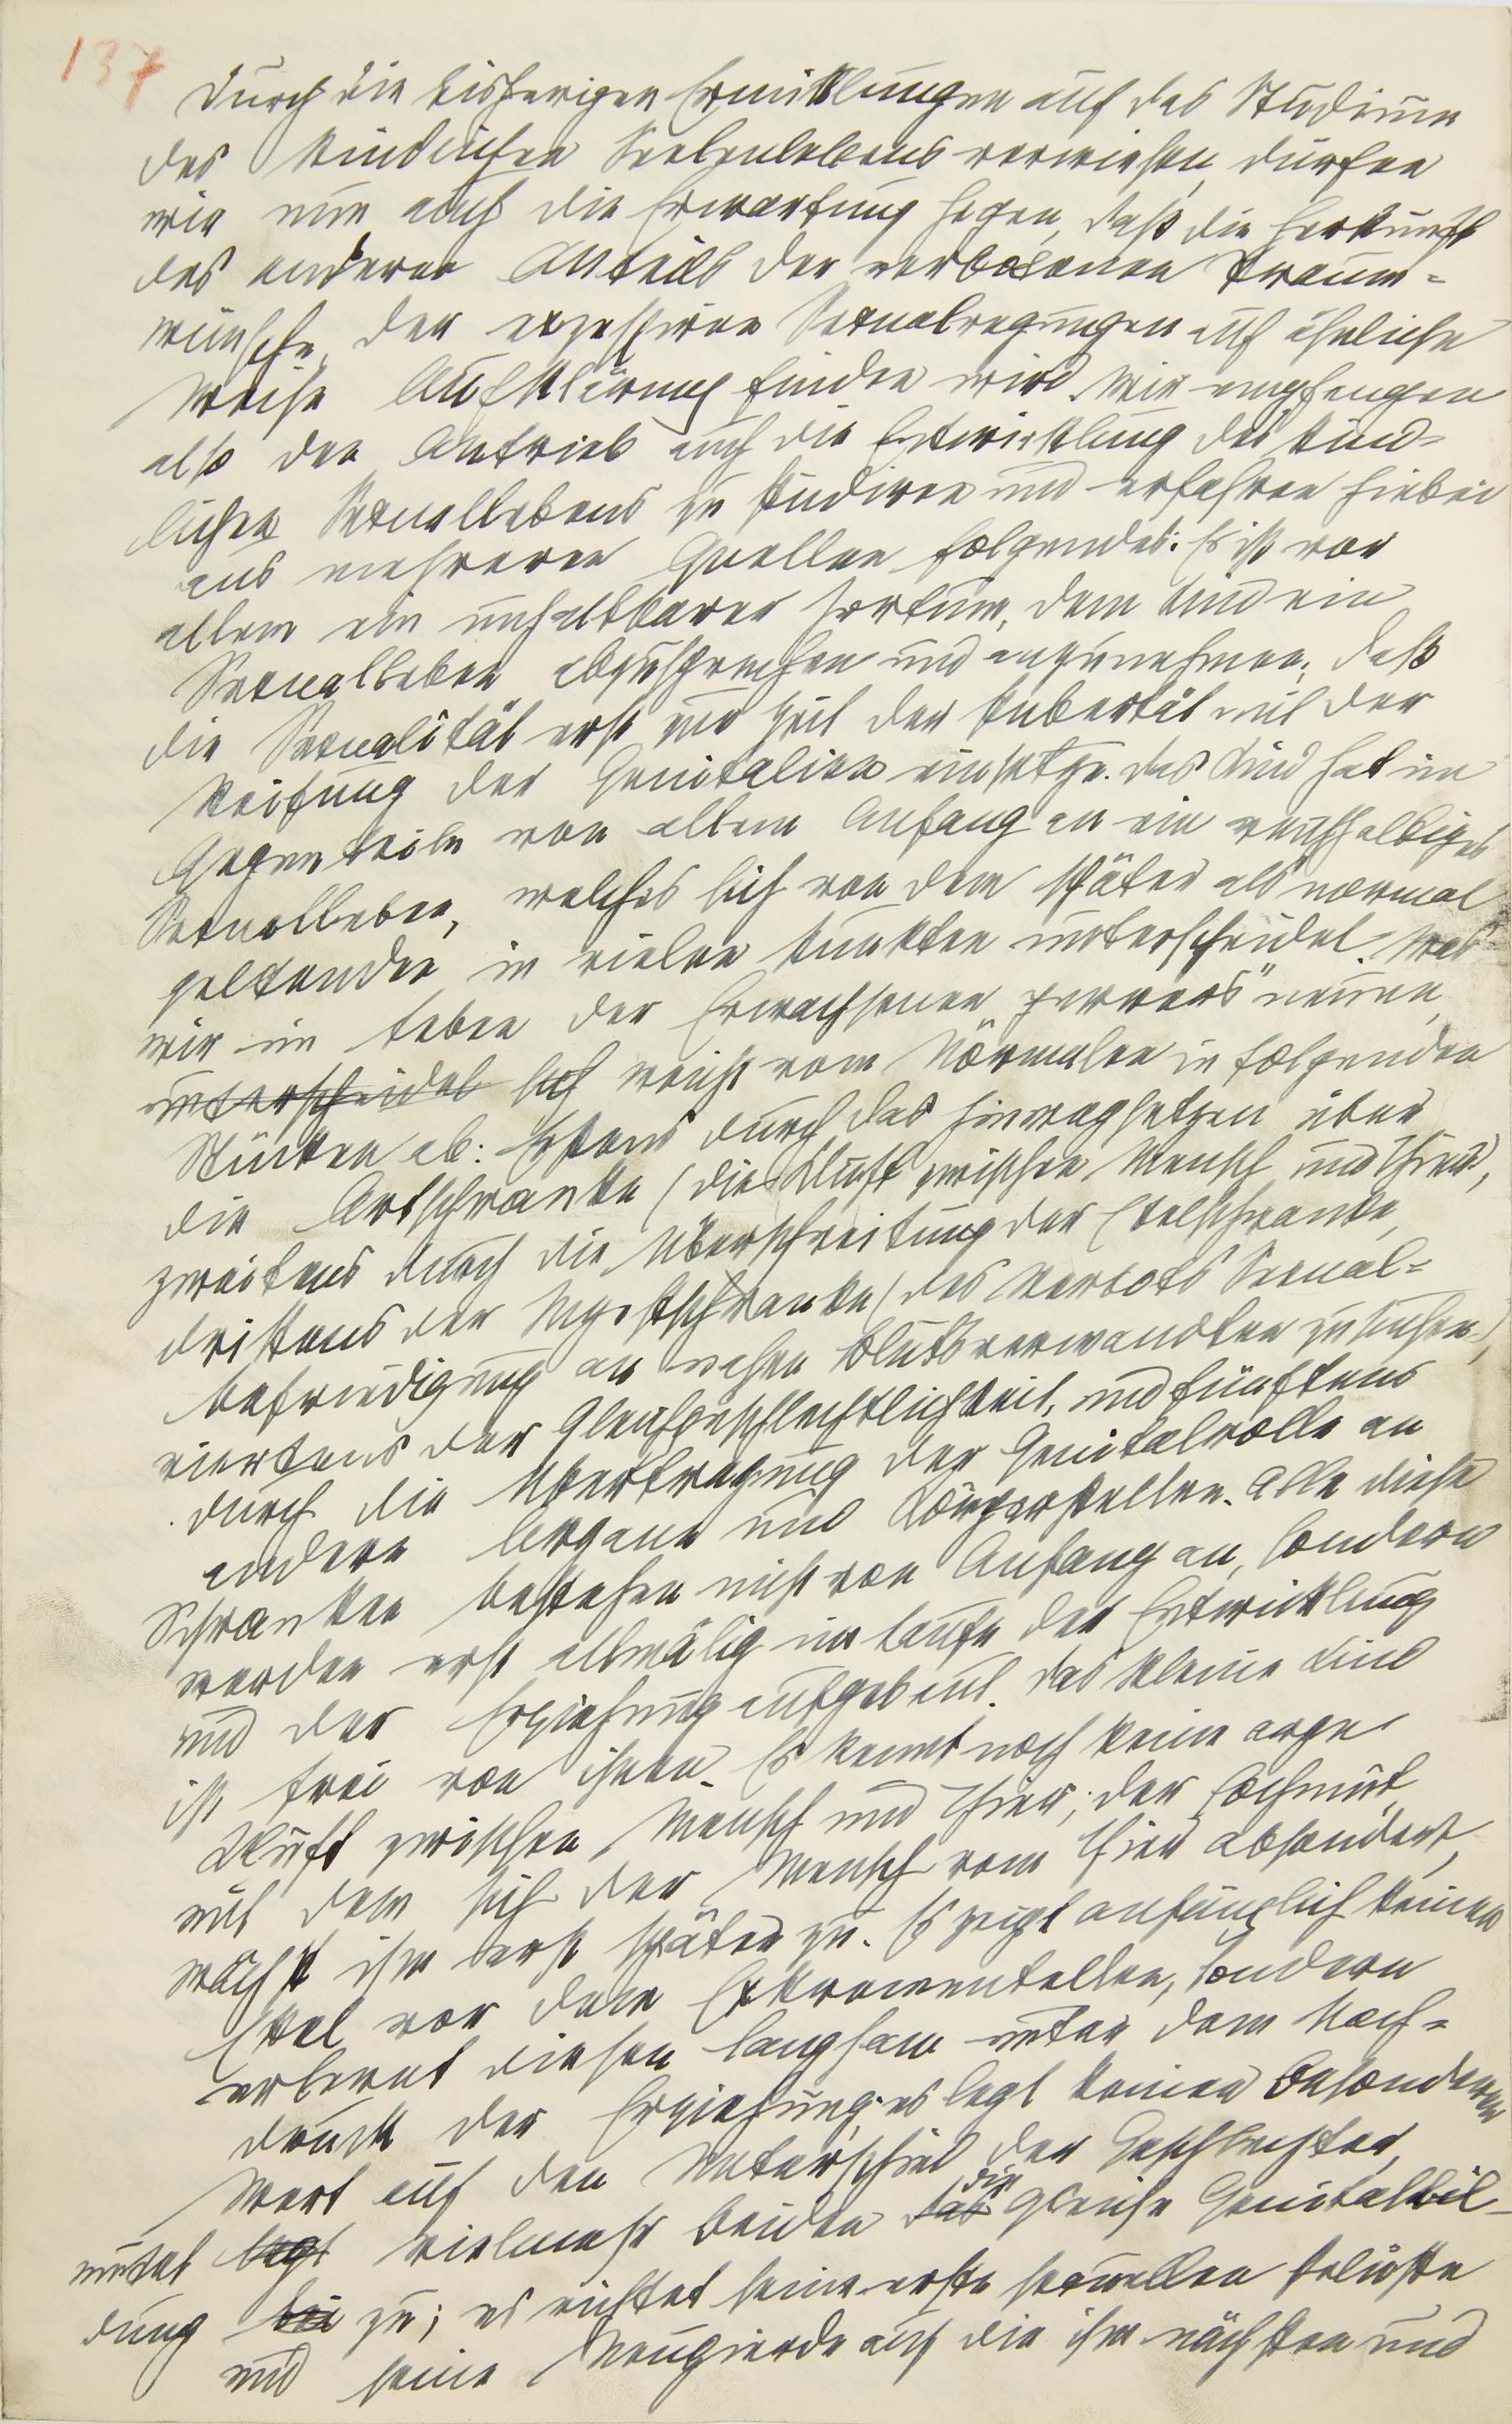 137
Durch die bisherigen Ermittlungen auf das Studium
des kindlichen Seelenlebens verwiesen, dürfen
wir nun auch die Erwartung hegen, daß die Herkunft
des anderen Anteils der verbotenen Traum-
wünsche, der exzessiven Sexualregungen auf ähnliche
Weise Aufklärung finden wird. Wir empfangen
also den Antrieb auch die Entwicklung des kind-
lichen Sexuallebens zu studiren und erfahren hiebei
aus mehreren Quellen folgendes: Es ist vor
allem ein unhaltbarer Irrtum, dem Kind ein
Sexualleben abzusprechen und anzunehmen, daß
die Sexualität erst zur Zeit der Pubertät mit der
Reifung der Genitalien einsetze. Das Kind hat im
Gegenteile von allem Anfang an ein reichhaltiges
Sexualleben, welches sich von dem später als normal
geltenden in vielen Punkten unterscheidet. Was
wir im Leben der Erwachsenen „pervers" nennen,
unterscheidet sich weicht vom Normalen in folgenden
Stücken ab: Erstens durch das Hinwegsetzen über
die Artschranke (die Kluft zwischen Mensch und Thier),
zweitens durch die Überschreitung der Ekelschranke,
drittens der Inzestschranke (des Verbots Sexual-
befriedigung an nahen Blutsverwandten zu suchen),
viertens der Gleichgeschlechtlichkeit, und fünftens
durch die Übertragung der Genitalrolle an
andere Organe und Körperstellen. Alle diese
Schranken bestehen nicht von Anfang an, sondern
werden erst allmälig im Laufe der Entwicklung
und der Erziehung aufgebaut. Das kleine Kind
ist frei von ihnen. Es kennt noch keine arge
Kluft zwischen Mensch und Thier; der Hochmut,
mit dem sich der Mensch vom Thier absondert,
wächst ihm erst später zu. Es zeigt anfänglich keinen
Ekel vor dem Exkrementellen, sondern
erlernt diesen langsam unter dem Nach-
druck der Erziehung; es legt keinen besonderen
Wert auf den Unterschied der Geschlechter,
mutet legt vielmehr beiden das die gleiche Genitalbil-
dung bei zu; es richtet seine erste sexuellen Gelüste
und seine Neugierde auf die ihm nächsten und